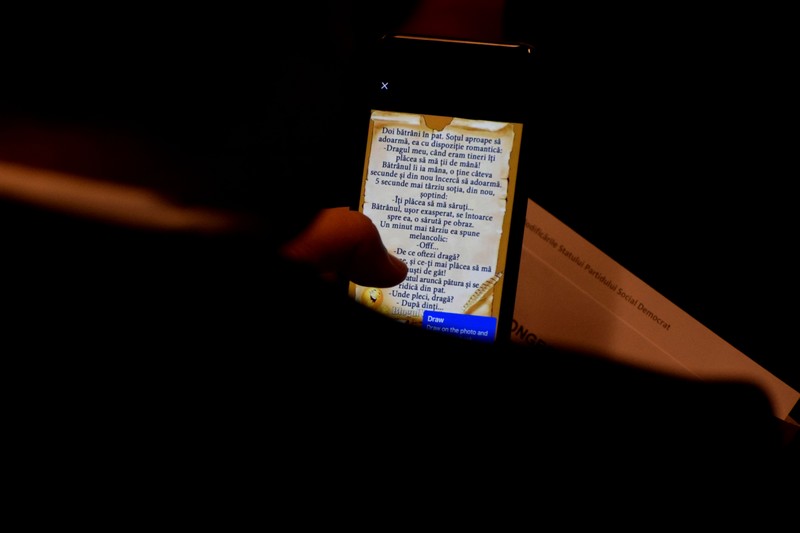 Doi bătrâni în pat. Soțul aproape să
adoarmă, ea cu dispoziție romantică:
-Dragul meu, când eram tineri îți
plăcea să mă ții de mână!
Bătrânul îi ia mâna, o ține câteva
secunde și din nou încercă să adoarmă.
5 secunde mai târziu soția, din nou,
șoptind:
-Îți plăcea să mă săruți...
Bătrânul, ușor exasperat, se întoarce
spre ea, o sărută pe obraz.
Un minut mai târziu ea spune
melancolic:
-Offf...
-De ce oftezi dragă?
și ce-ți mai plăcea să mă
de gât!
aruncă pătura și se
ridică din pat.
-Unde pleci, dragă?
- După dinți...
Draw
Draw on the photo and
Statutului Partidului Social Democrat